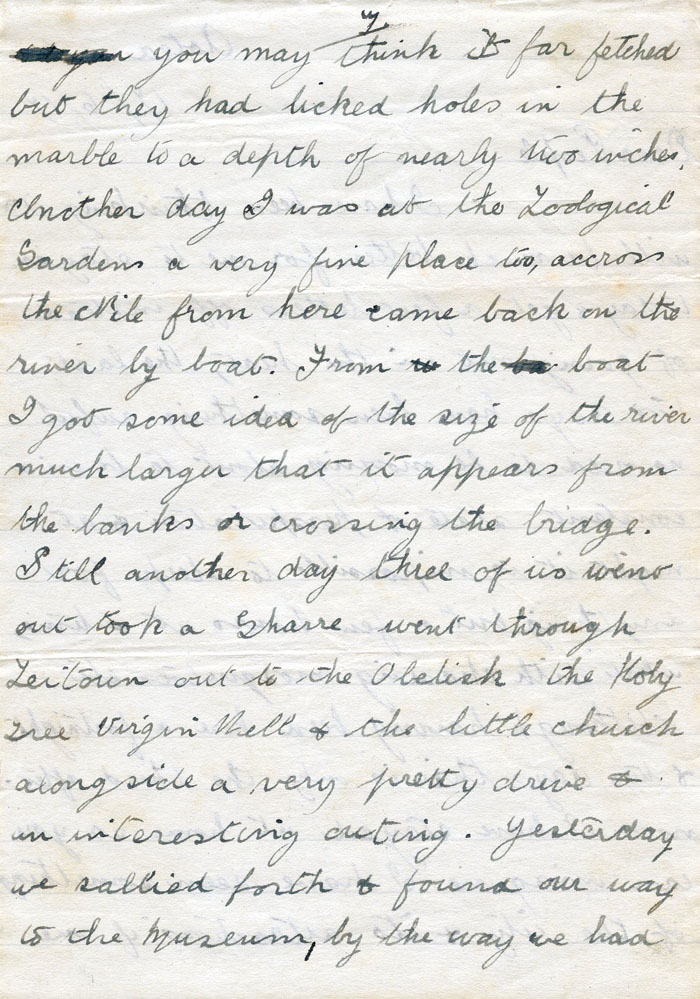 4.
you may think it far fetched
but they had licked holes in the
marble to a depth of nearly two inches,
Another day I was at the Zoological
Gardens a very fine place too, accross
the Nile from here came back on the
river by boat. From the boat
I got some idea of the size of the river
much larger that it appears from
the banks or crossing the bridge.
Still another day three of us went
out took a Gharre went through
Zeitoun out to the Obelisk the Holy
Tree Virgin Well & the little church
alongside a very pretty drive &
an interesting outing. Yesterday
we sallied forth & found our way
to the Museum, by the way we had